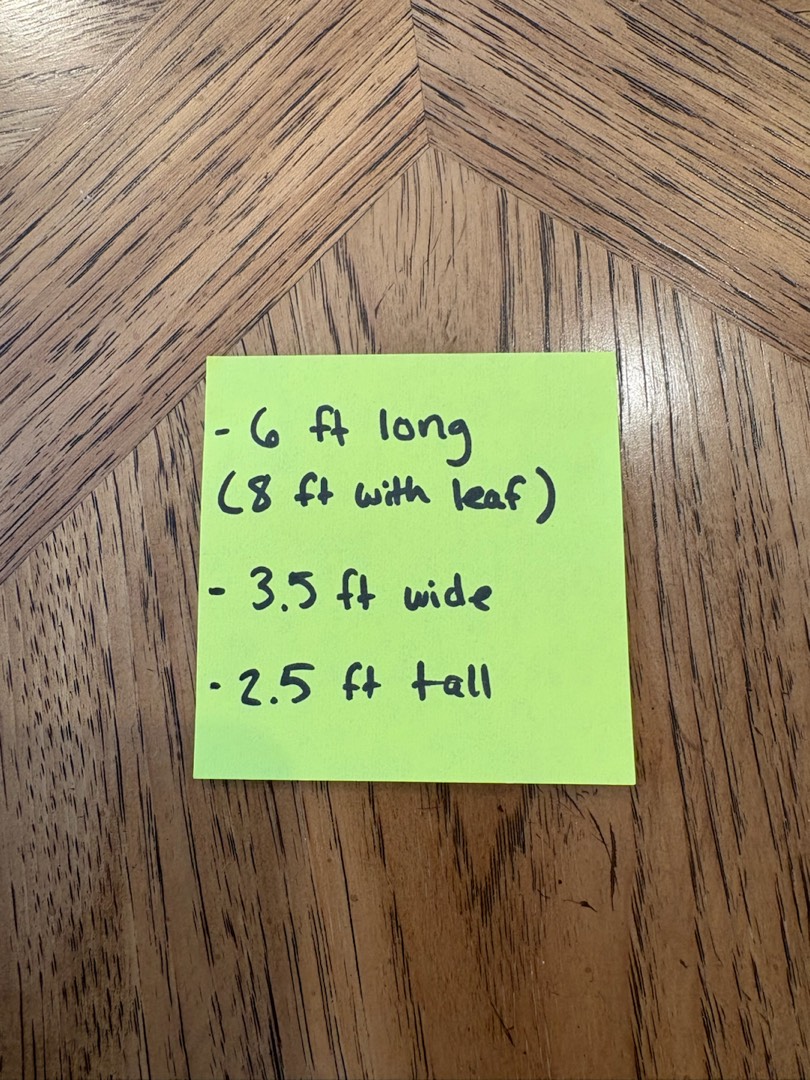 - 6 ft long
(8 ft with leaf)
- 3.5 ft wide
- 2.5 ft tall